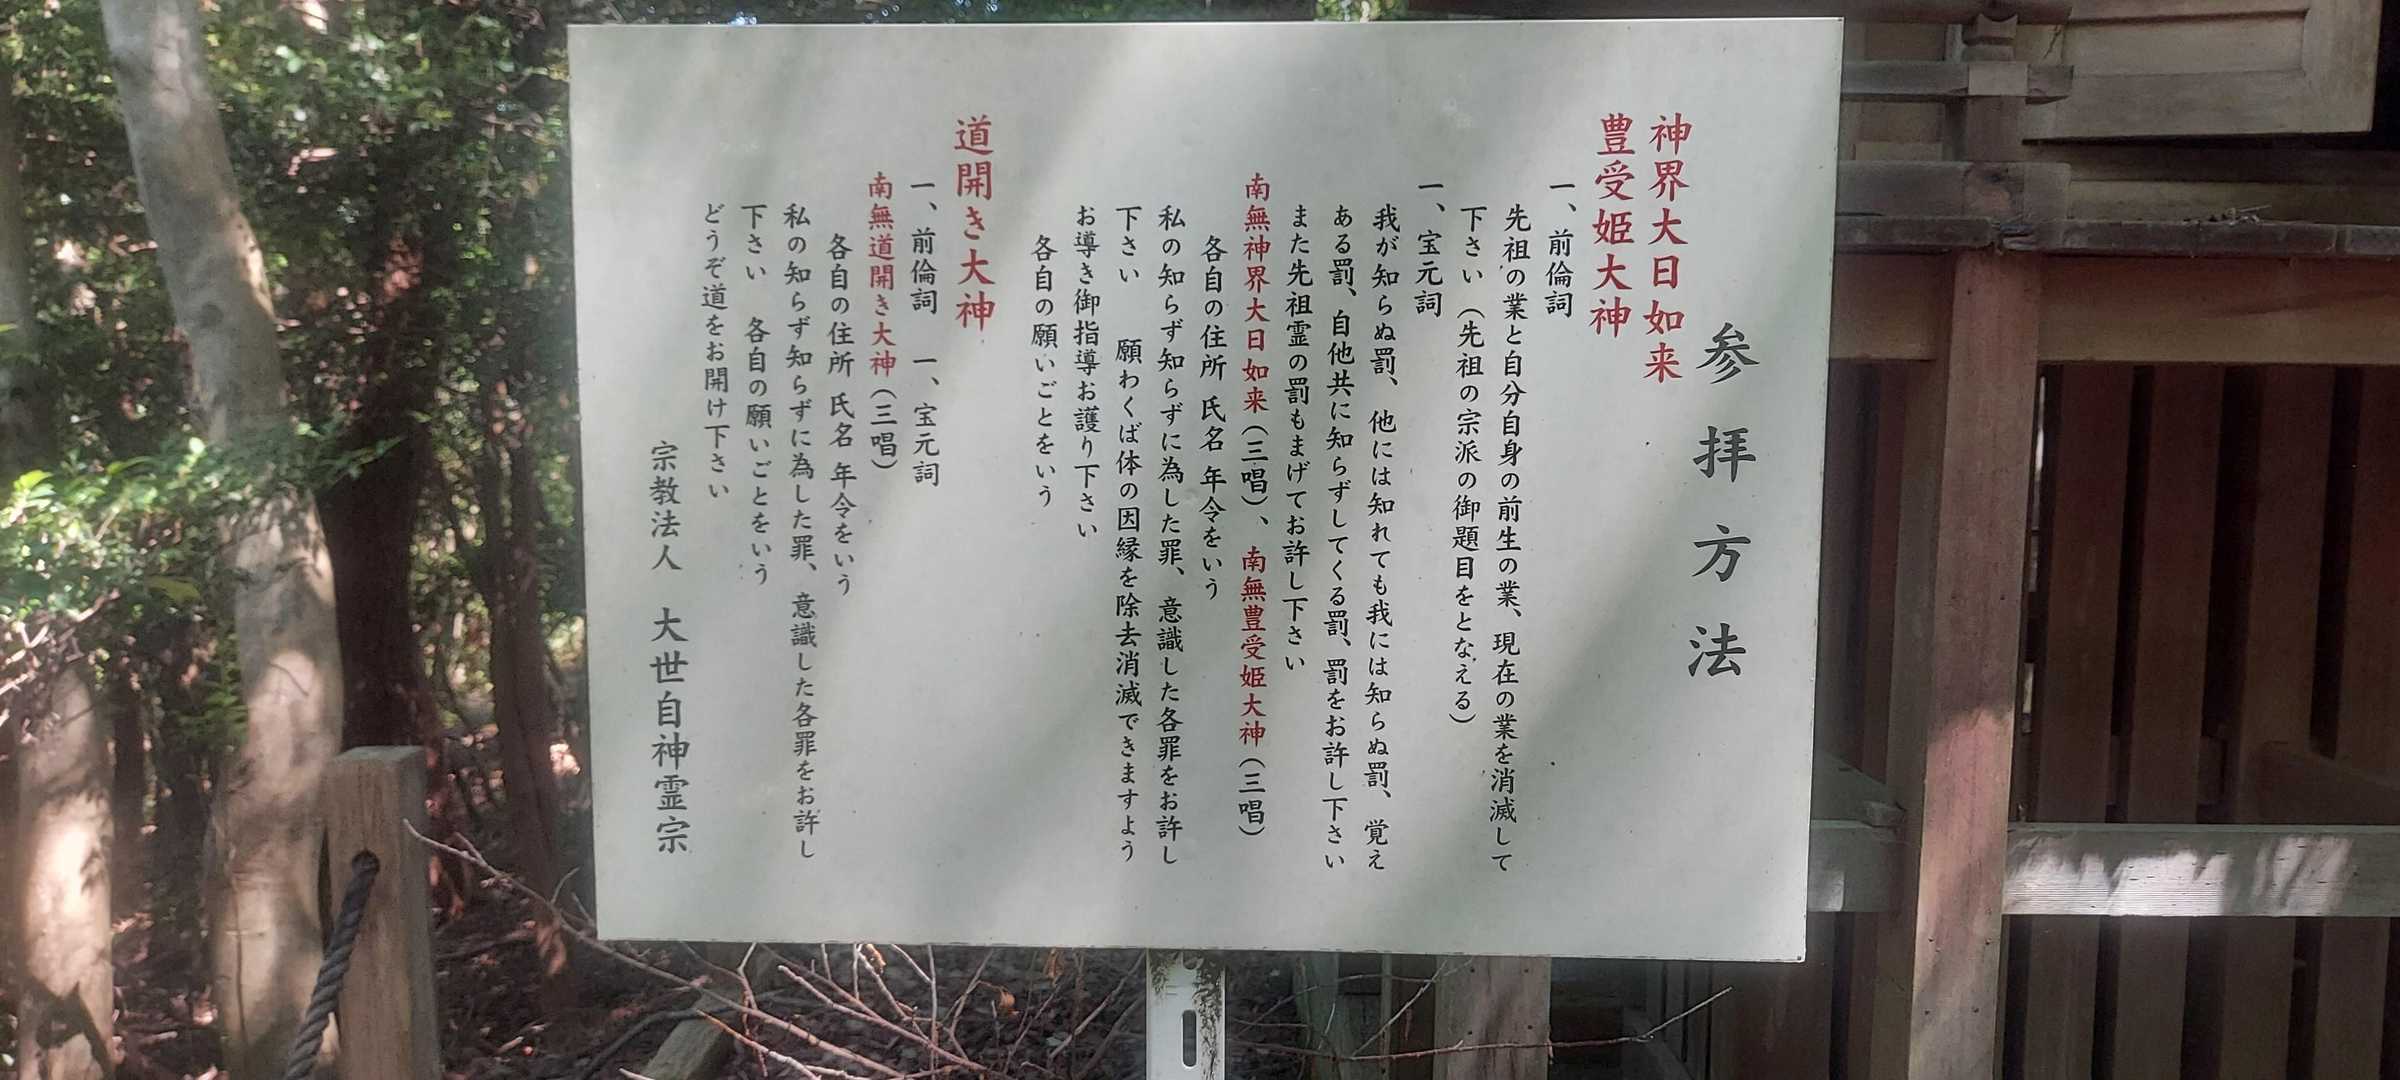 参拝方法
神界大日如来
豊受姫大神
一、前倫詞
先祖の業と自分自身の前生の業、現在の業を消滅して
下さい（先祖の宗派の御題目をとなえる）
一、宝元詞
我が知らぬ罰、他には知れても我には知らぬ罰、覚え
ある罰、自他共に知らずしてくる罰、罰をお許し下さい
また先祖霊の罰もまげてお許し下さい
南無神界大日如来（三唱）、南無豊受姫大神（三唱）
各自の住所 氏名 年令をいう
私の知らず知らずに為した罪、意識した各罪をお許し
下さい　願わくば体の因縁を除去消滅できますよう
お導き御指導お護り下さい
各自の願いごとをいう
道開き大神
一、前倫詞　一、宝元詞
南無道開き大神（三唱）
各自の住所 氏名 年令をいう
私の知らず知らずに為した罪、意識した各罪をお許し
下さい　各自の願いごとをいう
どうぞ道をお開け下さい
宗教法人　大世自神霊宗